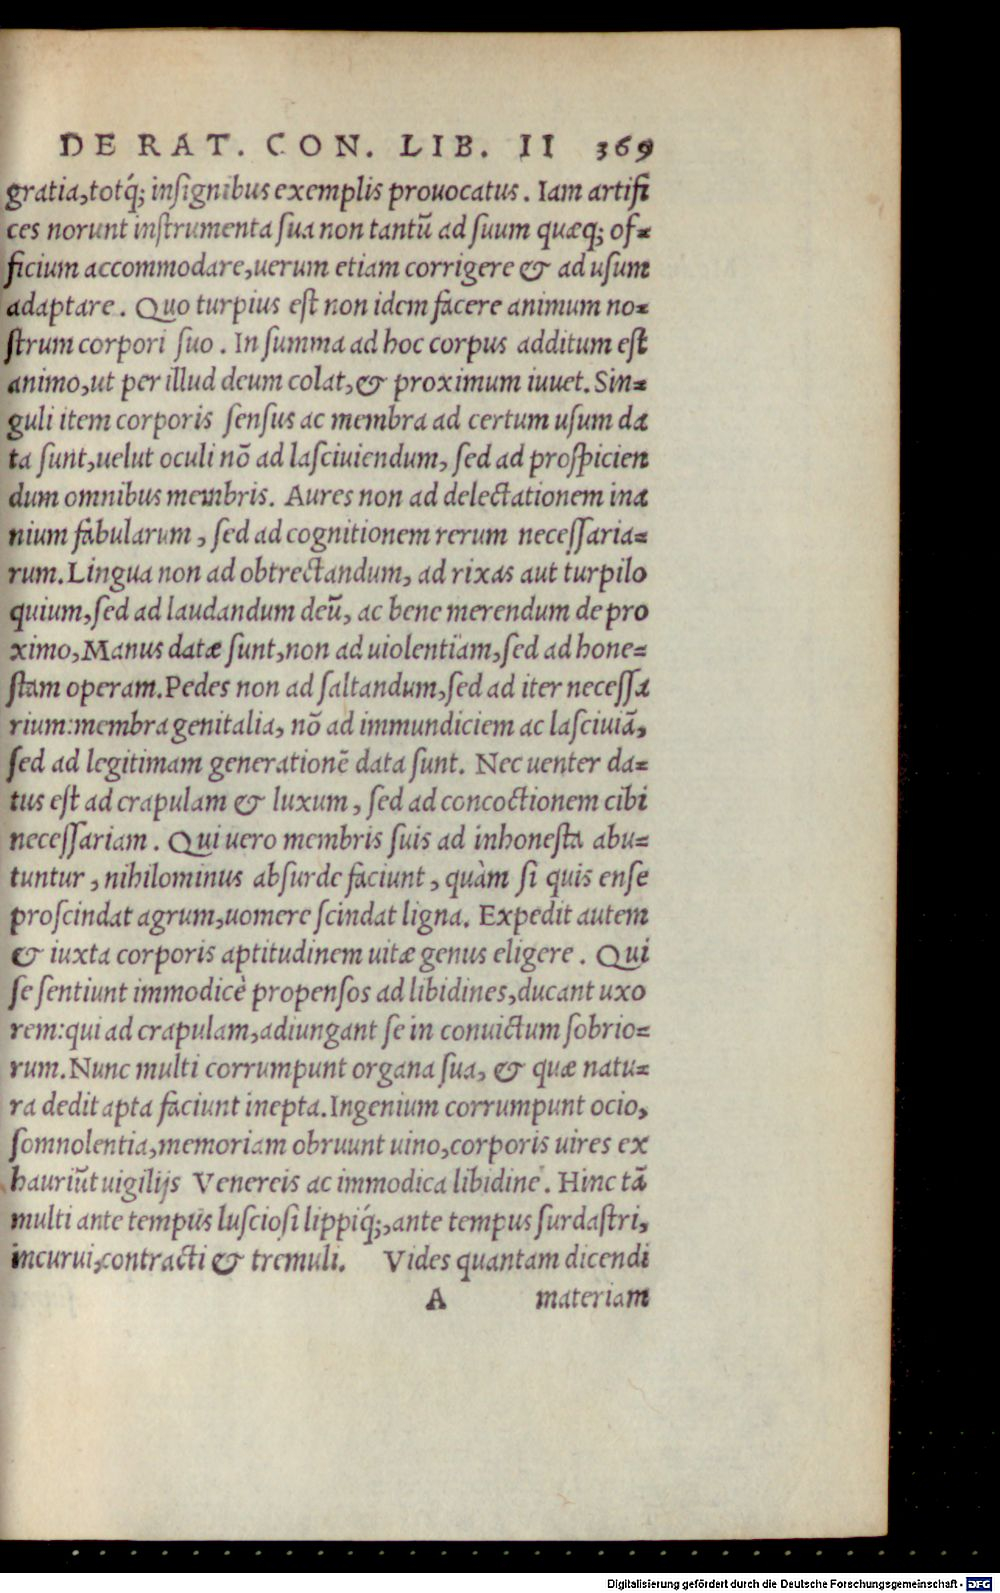 DE RAT. CON. LIB. II 369
gratia,totq́; inſignibus exemplis prouocatus. Iam artifi
ces norunt inſtrumenta ſua non tantũ ad ſuum quæq; of-
ficium accommodare,uerum etiam corrigere & ad uſum
adaptare. Quo turpius eſt non idem facere animum no-
ſtrum corpori ſuo. In ſumma ad hoc corpus additum eſt
animo,ut per illud deum colat,& proximum iuuet. Sin-
guli item corporis ſenſus ac membra ad certum uſum da
ta ſunt,uelut oculi nõ ad laſciuiendum, ſed ad proſpicien
dum omnibus membris. Aures non ad delectationem ina
nium fabularum, ſed ad cognitionem rerum neceſſaria-
rum. Lingua non ad obtrectandum, ad rixas aut turpilo
quium,ſed ad laudandum deũ, ac bene merendum de pro
ximo, Manus datæ ſunt,non ad uiolentiam,ſed ad hone-
ſtam operam. Pedes non ad ſaltandum,ſed ad iter neceſſa
rium:membra genitalia, nõ ad immundiciem ac laſciuiã,
ſed ad legitimam generationẽ data ſunt. Nec uenter da-
tus eſt ad crapulam & luxum, ſed ad concoctionem cibi
neceſſariam. Qui uero membris ſuis ad inhoneſta abu-
tuntur, nihilominus abſurde faciunt, quàm ſi quis enſe
proſcindat agrum,uomere ſcindat ligna. Expedit autem
& iuxta corporis aptitudinem uitæ genus eligere. Qui
ſe ſentiunt immodicè propenſos ad libidines,ducant uxo
rem:qui ad crapulam,adiungant ſe in conuictum ſobrio-
rum. Nunc multi corrumpunt organa ſua, & quæ natu-
ra dedit apta faciunt inepta. Ingenium corrumpunt ocio,
ſomnolentia,memoriam obruunt uino,corporis uires ex
hauriũt uigilijs Venereis ac immodica libidine. Hinc tã
multi ante tempus luſcioſi lippiq́;,ante tempus ſurdaſtri,
incurui,contracti & tremuli. Vides quantam dicendi
A materiam
Digitalisierung gefördert durch die Deutsche Forschungsgemeinschaft - DFG